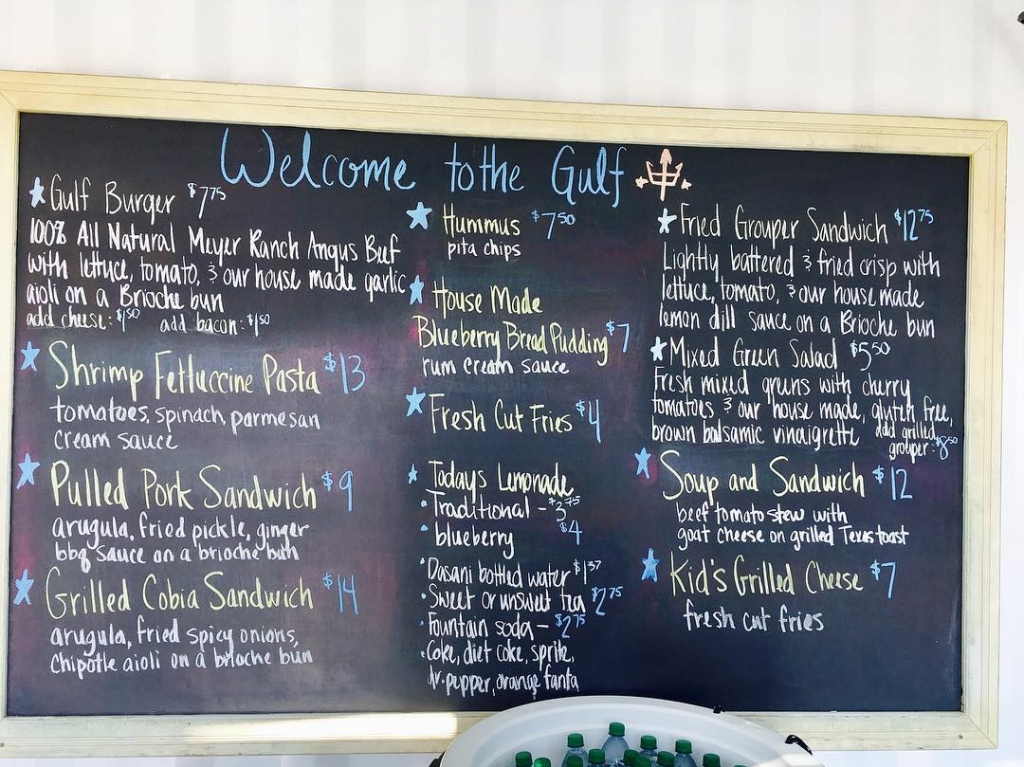 Welcome to the Gulf
Gulf Burger $7.75
100% All Natural Meyer Ranch Angus Beef
with lettuce, tomato, & our house made garlic
aioli on a Brioche bun
add cheese: $1.50 add bacon: $1.50
Shrimp Fettuccine Pasta $13
tomatoes, spinach, parmesan
cream sauce
Pulled Pork Sandwich $9
arugula, fried pickle, ginger
bbq sauce on a brioche bun
Grilled Cobia Sandwich $14
arugula, fried spicy onions,
Chipotle aioli on a brioche bun
Hummus $7.50
pita chips
House Made
Blueberry Bread Pudding $7
rum cream sauce
Fresh Cut Fries $4
Todays Lemonade
• Traditional - $3.75
• blueberry $4
• Dasani bottled water $1.37
• Sweet or unsweet tea $2.75
• Fountain soda - $2.75
• Coke, diet coke, sprite,
dr. pepper, orange fanta
Fried Grouper Sandwich $12.75
Lightly battered & fried crisp with
lettuce, tomato, & our house made
lemon dill sauce on a Brioche bun
Mixed Green Salad $5.50
Fresh mixed greens with cherry
tomatoes & our house made, gluten free,
brown balsamic vinaigrette add grilled
grouper: $8.50
Soup and Sandwich $12
beef tomato stew with
goat cheese on grilled Texas toast
Kid's Grilled Cheese $7
fresh cut fries